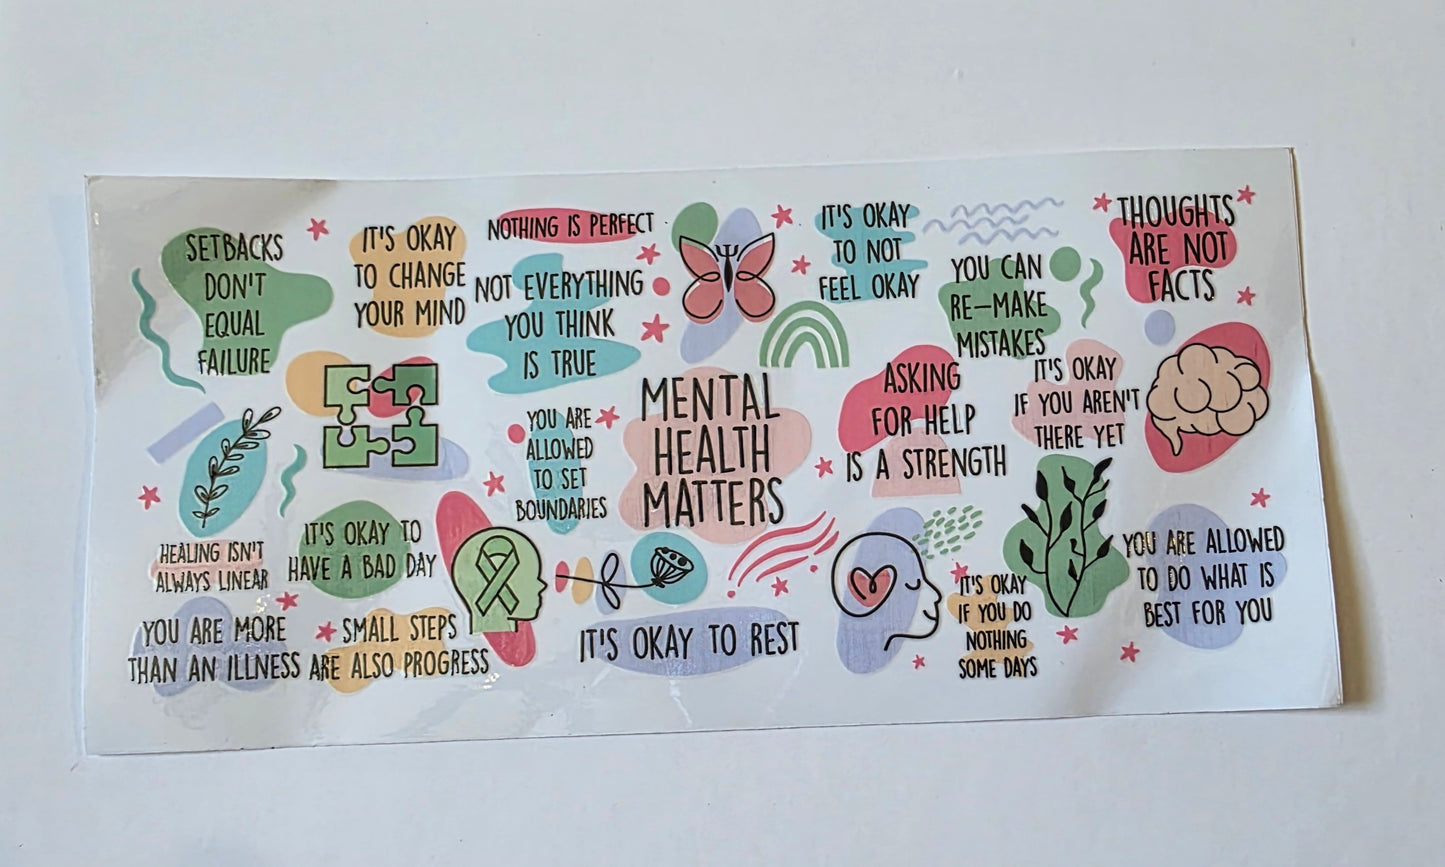 SETBACKS
DON'T
EQUAL
FAILURE
IT'S OKAY
TO CHANGE
YOUR MIND
NOTHING IS PERFECT
NOT EVERYTHING
YOU THINK
IS TRUE
IT'S OKAY
TO NOT
FEEL OKAY
YOU CAN
RE-MAKE
MISTAKES
THOUGHTS
ARE NOT
FACTS
YOU ARE
ALLOWED
TO SET
BOUNDARIES
MENTAL
HEALTH
MATTERS
ASKING
FOR HELP
IS A STRENGTH
IT'S OKAY
IF YOU AREN'T
THERE YET
HEALING ISN'T
ALWAYS LINEAR
IT'S OKAY TO
HAVE A BAD DAY
YOU ARE MORE
THAN AN ILLNESS
SMALL STEPS
ARE ALSO PROGRESS
IT'S OKAY TO REST
IT'S OKAY
IF YOU DO
NOTHING
SOME DAYS
YOU ARE ALLOWED
TO DO WHAT IS
BEST FOR YOU